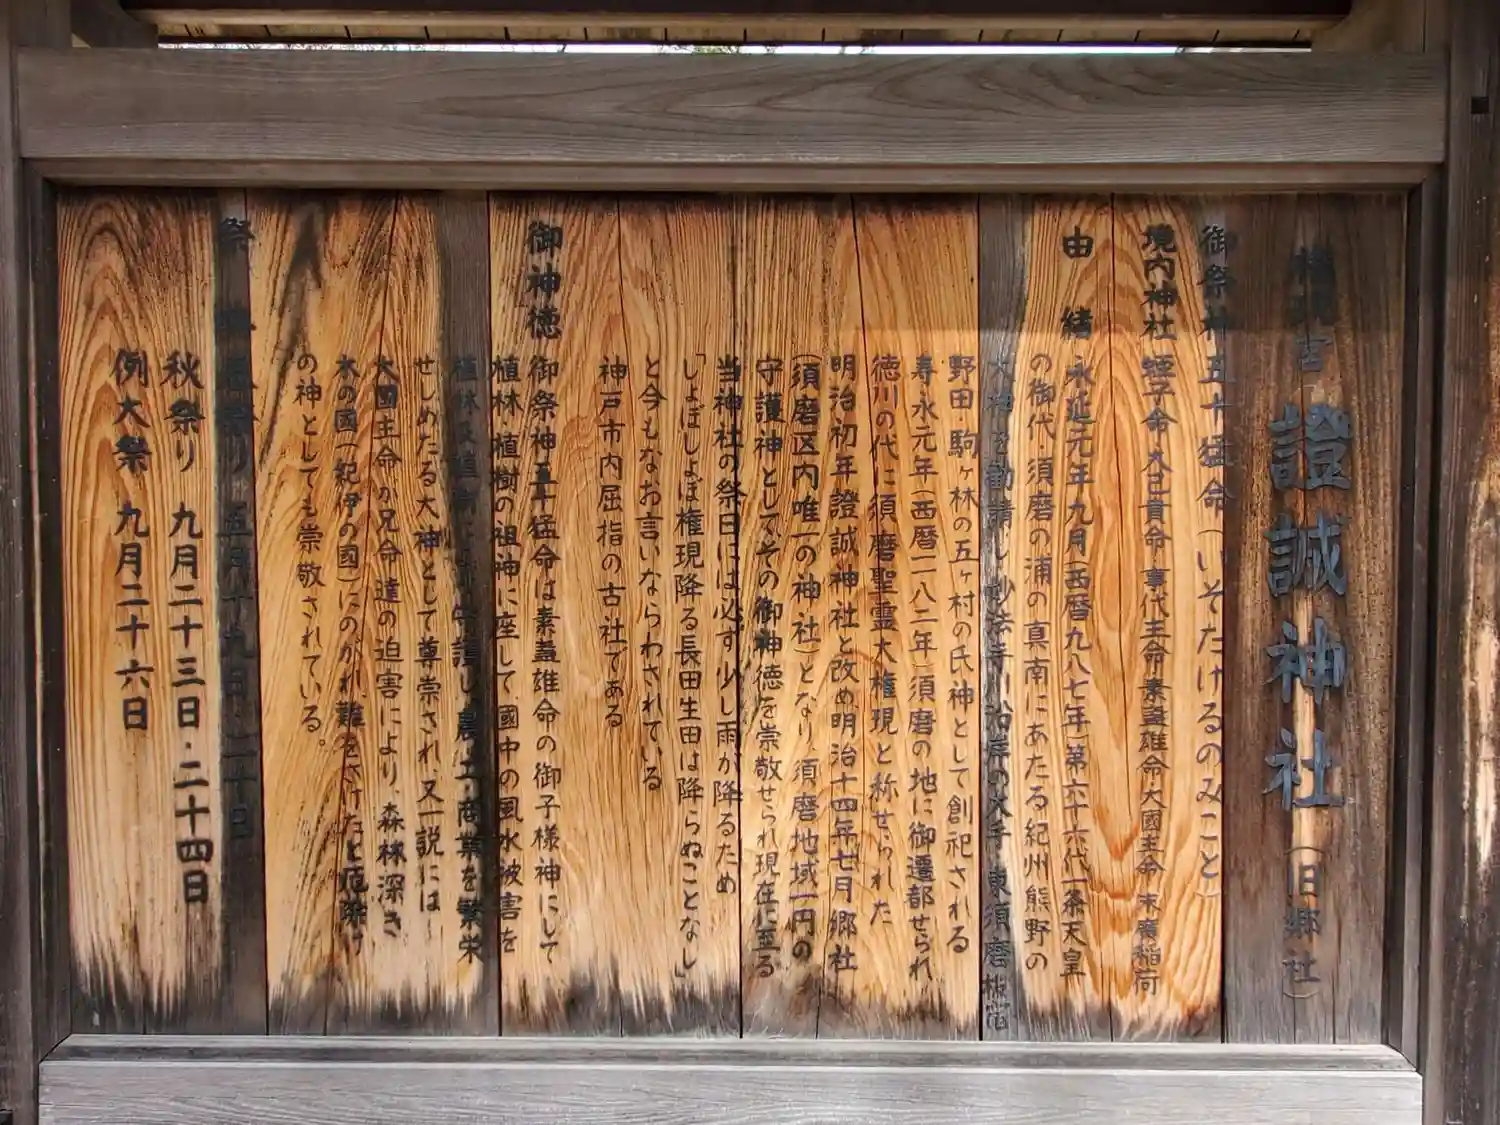 證誠神社（旧郷社）
御祭神 五十猛命（いそたけるのみこと）
境内神社 蛭子命 大己貴命 事代主命 素盞雄命 大國主命 末廣稲荷
由緒 永延元年九月（西暦九八七年）第六十六代一条天皇
の御代、須磨の浦の真南にあたる紀州熊野の
大神を勧請し妙法寺川沿岸の 東須磨板宿
野田 駒ヶ林の五ヶ村の氏神として創祀される
寿永元年（西暦一一八二年）須磨の地に御遷都せられ
徳川の代に須磨聖霊大権現と称せられた
明治初年證誠神社と改め明治十四年七月郷社
（須磨区内唯一の神社）となり、須磨地域一円の
守護神としてその御神徳を崇敬せられ現在に至る
当神社の祭日には必ず少し雨が降るため
「しょぼしょぼ権現降る長田生田は降らぬことなし」
と今もなお言いならわされている
神戸市内屈指の古社である
御神徳 御祭神五十猛命は素盞雄命の御子様神にして
植林 植樹の祖神に座して、國中の風水被害を
植林 農・工・商業を繁栄
せしめたる大神として尊崇され、又一説には
大國主命が兄命達の迫害により、森林深き
木の國（紀伊の國）にのがれ、難をさけたと厄除け
の神としても崇敬されている。
祭 五月十九日・二十日
秋祭り 九月二十三日・二十四日
例大祭 九月二十六日